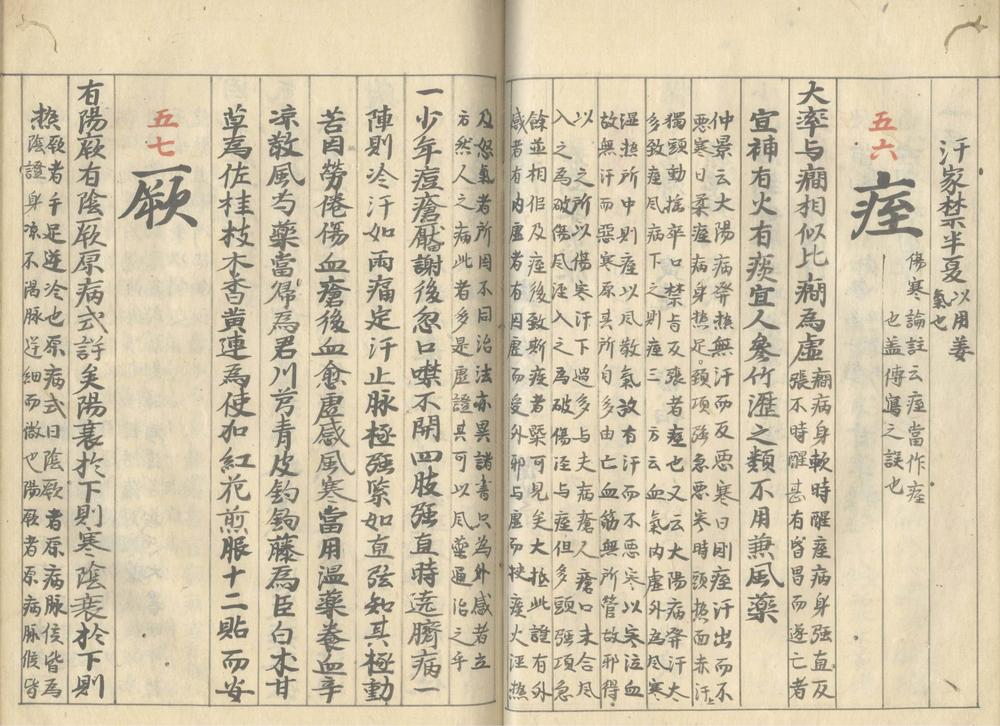 汗家禁半夏以用姜
氣也
五六 痓
傷寒論註云痓當作痙
也盖傳寫之誤也
大率与癎相似比癎為虛癎病身軟時醒痓病身强直反
張不時醒甚有昏冒而遂亡者
宜神有火有痰宜人參竹瀝之類不用兼風藥
仲景云太陽病發熱無汗而反悪寒曰剛痓汗出而不
悪寒曰柔痓病身熱足寒頸項强急悪寒時頭熱面赤
獨頭動揺卒口禁背反張者痓也又云太陽病發汗太
多致痓風病下之則痓三方云血氣内虛外為風寒
湿熱所中則痓以風散氣故有汗而不悪寒以寒泣血
故無汗而悪寒原其所自多由亡血筋無所管故邪得
以之所以傷寒汗下過多与夫病瘡人瘡口未合風
入之為破傷風湿入之為破傷湿与痓但多頭强項急
餘並相但及痓後致斯疾者槩可見矣大抵此證有外
感者有内虛者有因虛而受外邪与虛而挾痰火湿熱
及怒氣者所因不同治法亦異諸書只為外感者立
方然人之病此者多是虛證其可以風藥通治之乎
一少年痘瘡靨謝後忽口噤不開四肢强直時遶臍病一
陣則冷汗如雨痛定汗止脉極强緊如直弦知其極動
苦因勞倦傷血瘡後血愈虛感風寒當用温藥養血辛
凉散風芍藥當帰為君川芎青皮釣鉤藤為臣白朮甘
草為佐桂枝木香黄連為使加紅花煎服十二貼而安
五七 厥
有陽厥有陰厥原病式詳矣陽衰扵下則寒陰衰扵下則
熱厥者手足逆冷也原病式曰陰厥者原病脉侯皆為
陰證身凉不渇脉逆細而微也陽厥者原病脉候皆